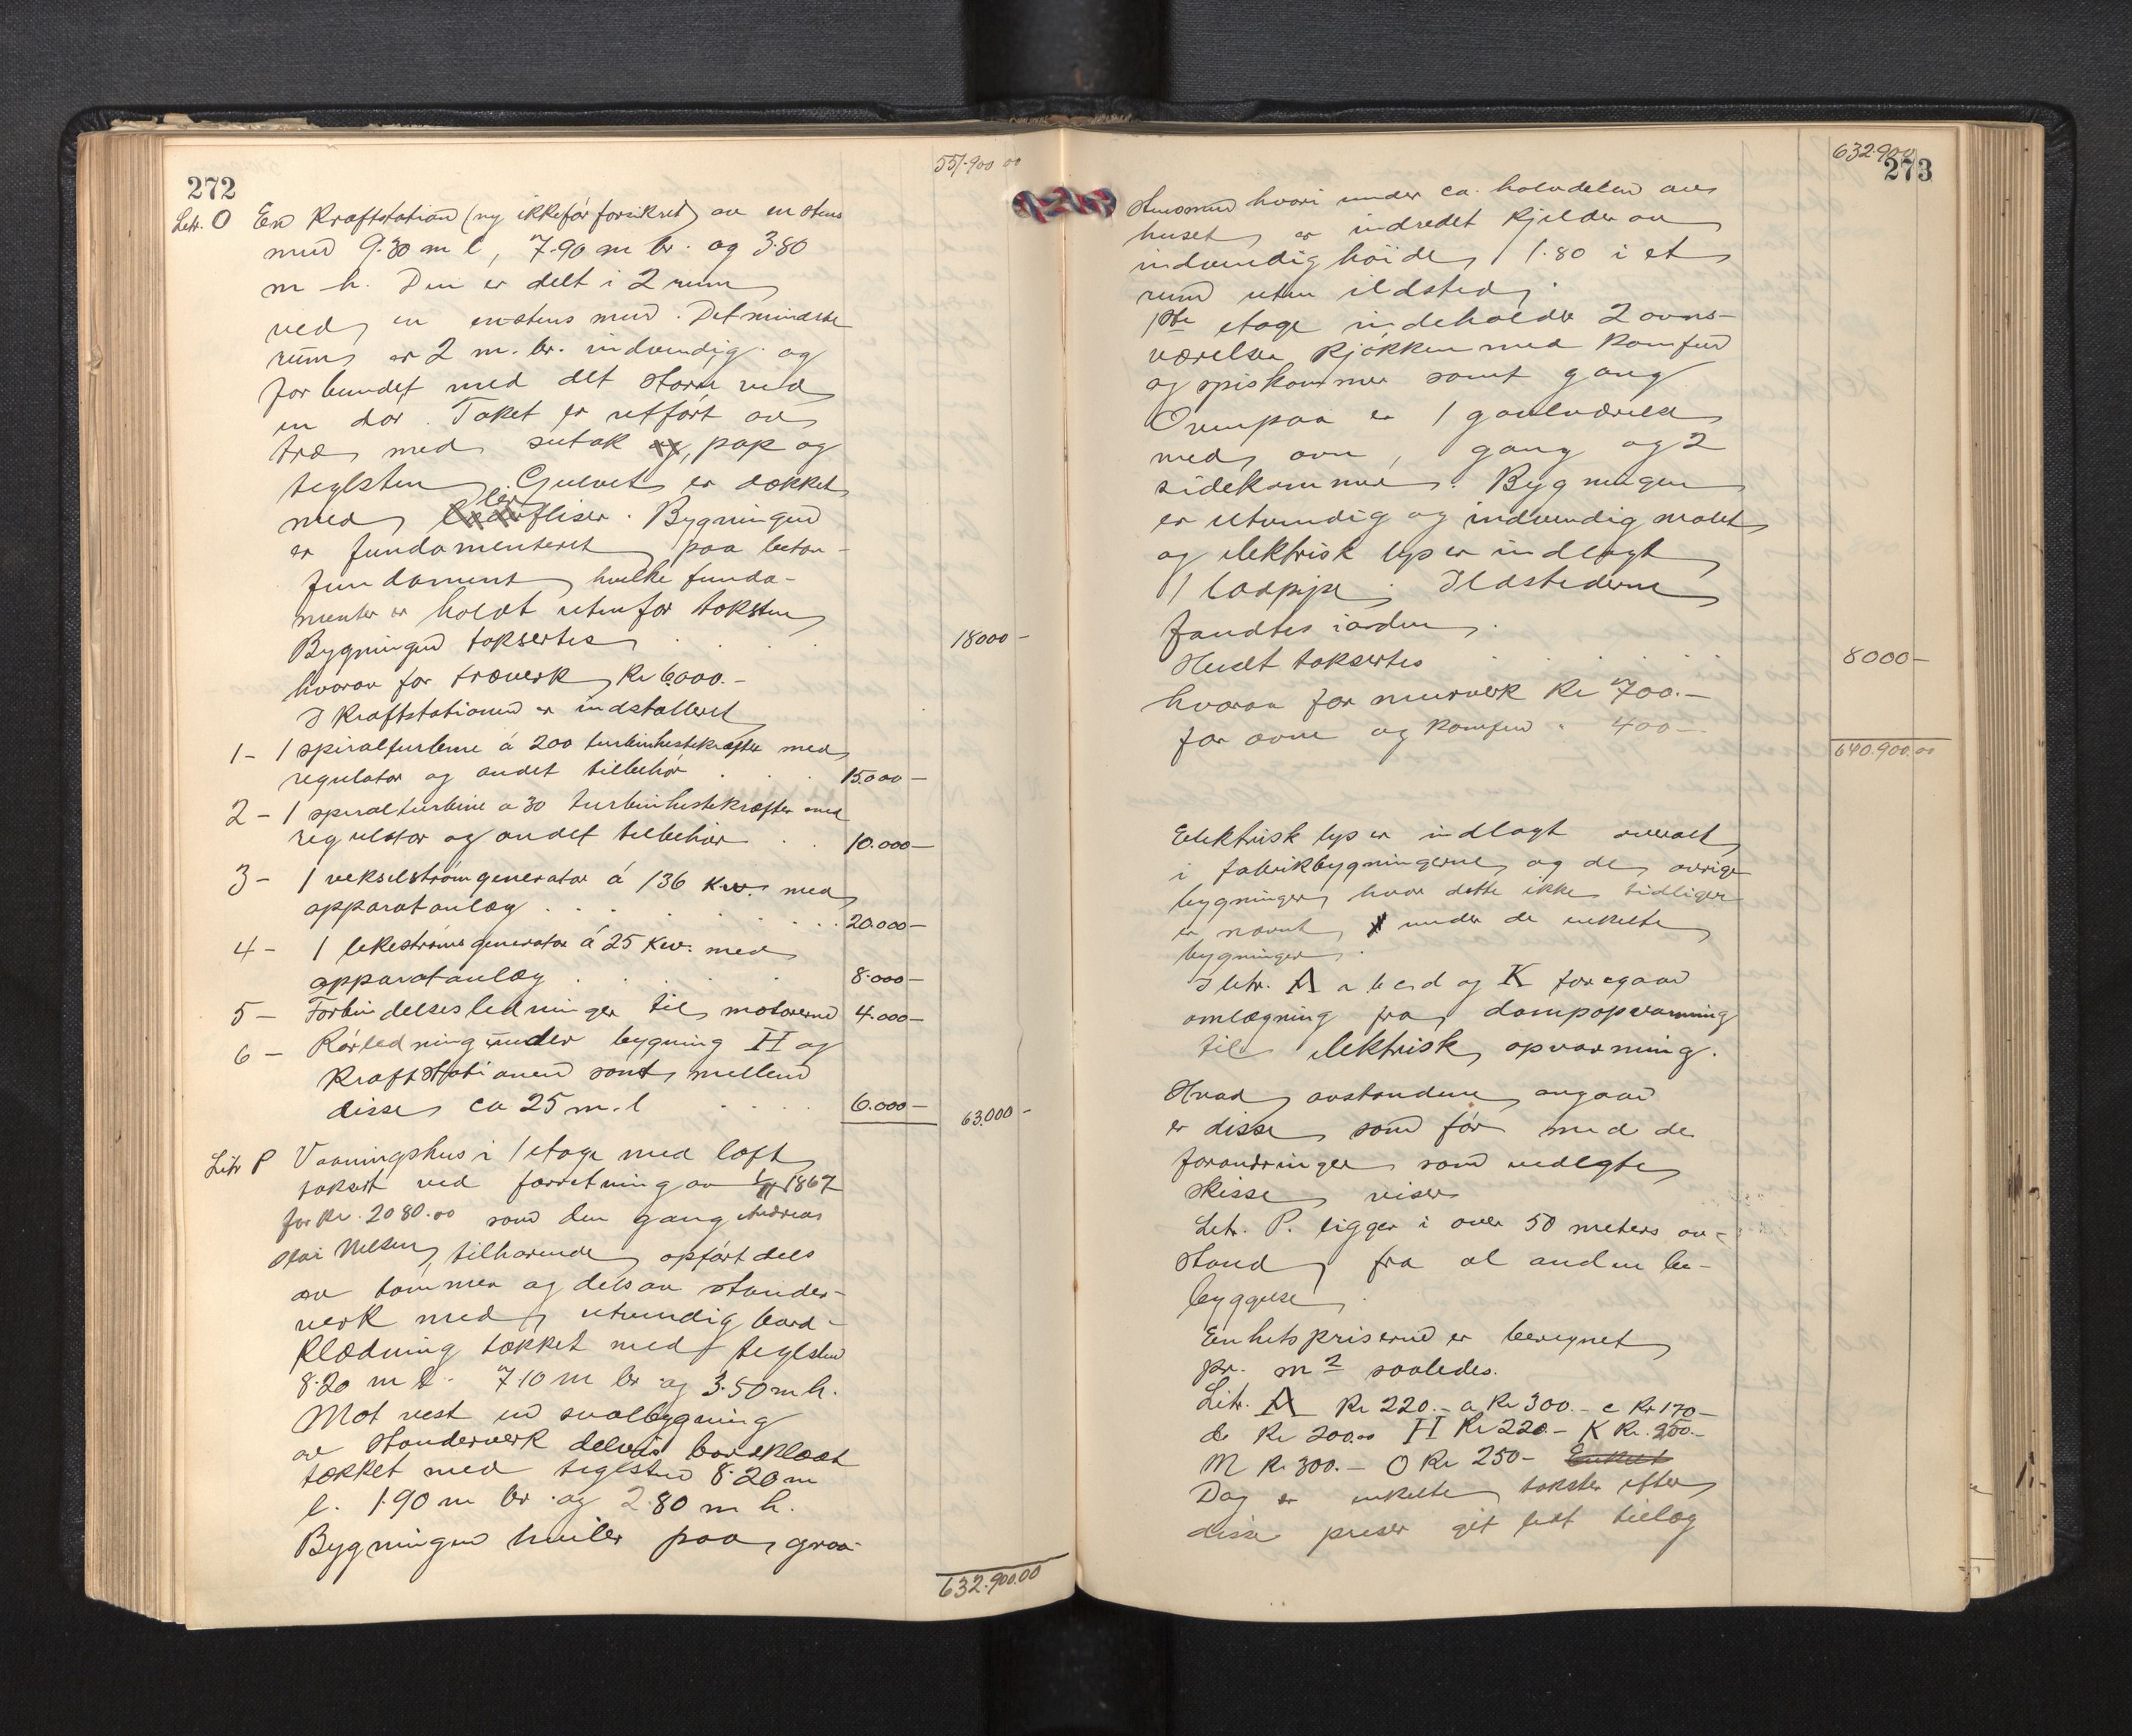 272
551.900 00
Litr. O En Kraftstation (ny ikke før forsikret) av en stens
mur 9.30 m l, 7.90 m br. og 3.80
m h. Den er delt i 2 rum
ved en enstens mur. Det mindste
rum er 2 m. br. indvendig og
forbundet med det større ved
en dør. Taket er utført av
træ med sutak og, pap og
teglsten. Gulvet er dækket
med lerfliser. Bygningen
er fundamenteret paa beton-
fundament, hvilke funda-
menter er holdt utenfor taksten
Bygningen taksertes . . . 18000 -
hvorav for træverk Kr 6000.-
I Kraftstationen er indstalleret
1 - 1 spiralturbine á 200 turbinhestekræfter med
regulator og andet tilbehør . . . 15.000 -
2 - 1 spiralturbine a 30 turbinhestekræfter med
regulator og andet tilbehør . . 10.000 -
3 - 1 vekselstrømgenerator á 136 Kw. med
apparatanlæg . . . . 20.000 -
4 - 1 likestrømsgenerator á 25 Kw. med
apparatanlæg . . . 8.000 -
5 - Forbindelsesledninger til motorerne 4.000 -
6 - Rørledning under bygning H og
Kraftstationen samt mellem
disse ca 25 m. l . . . 6.000 - 63.000 -
Litr P Vaaningshus i 1 etage med loft
taksert ved forretning av 1867
for Kr. 2080.00 som den gang Andreas
Olai Nilsen, tilhørende, opført dels
av tømmer og dels av stander-
verk med utvendig bord-
klædning tækket med teglsten
8.20 m l. 7.10 m br og 3.50 m h.
Mot vest en svalbygning
av standerverk delvis bordklædt
tækket med teglsten 8.20 m
l. 1.90 m br. og 2.80 m h.
Bygningen hviler paa graa-
632.900.00
632.900
273
stensmur hvori under ca. halvdelen av
huset er indredet kjelder av
indvendig høide 1.80 i et
rum uten ildsted.
1ste etage indeholder 2 ovns-
værelser, kjøkken med komfur
og spiskammer samt gang
Ovenpaa er 1 gavlværelse
med ovn, gang og 2
sidekammer. Bygningen
er utvendig og indvendig malet
og elektrisk lys er indlagt
1 ladpipe. Ildstederne
fandtes iorden.
Huset taksertes . . . . . 8000 -
hvorav for murverk Kr 700.-
for ovne og komfur " 400 -
640.900.00
Elektrisk lys er indlagt overalt
i fabrikbygningerne og de øvrige
bygninger, hvor dette ikke tidligere
er nævnt under de enkelte
bygninger.
I litr. A a b c d og K foregaar
omlægning fra dampopvarmning
til elektrisk opvarmning.
Hvad avstandene angaar
er disse som før med de
forandringer som vedlagte
skisse viser.
Litr. P. ligger i over 50 meters av-
stand fra al anden be-
byggelse.
Enhetspriserne er beregnet
pr. m2 saaledes.
Litr. A Kr 220.- a Kr 300.- c Kr 170 -
Kr 200.00 H Kr 220 - K Kr. 250.-
M Kr 300.- O Kr 250 -
Dog er enkelte takster efter
disse priser git litt tillæg